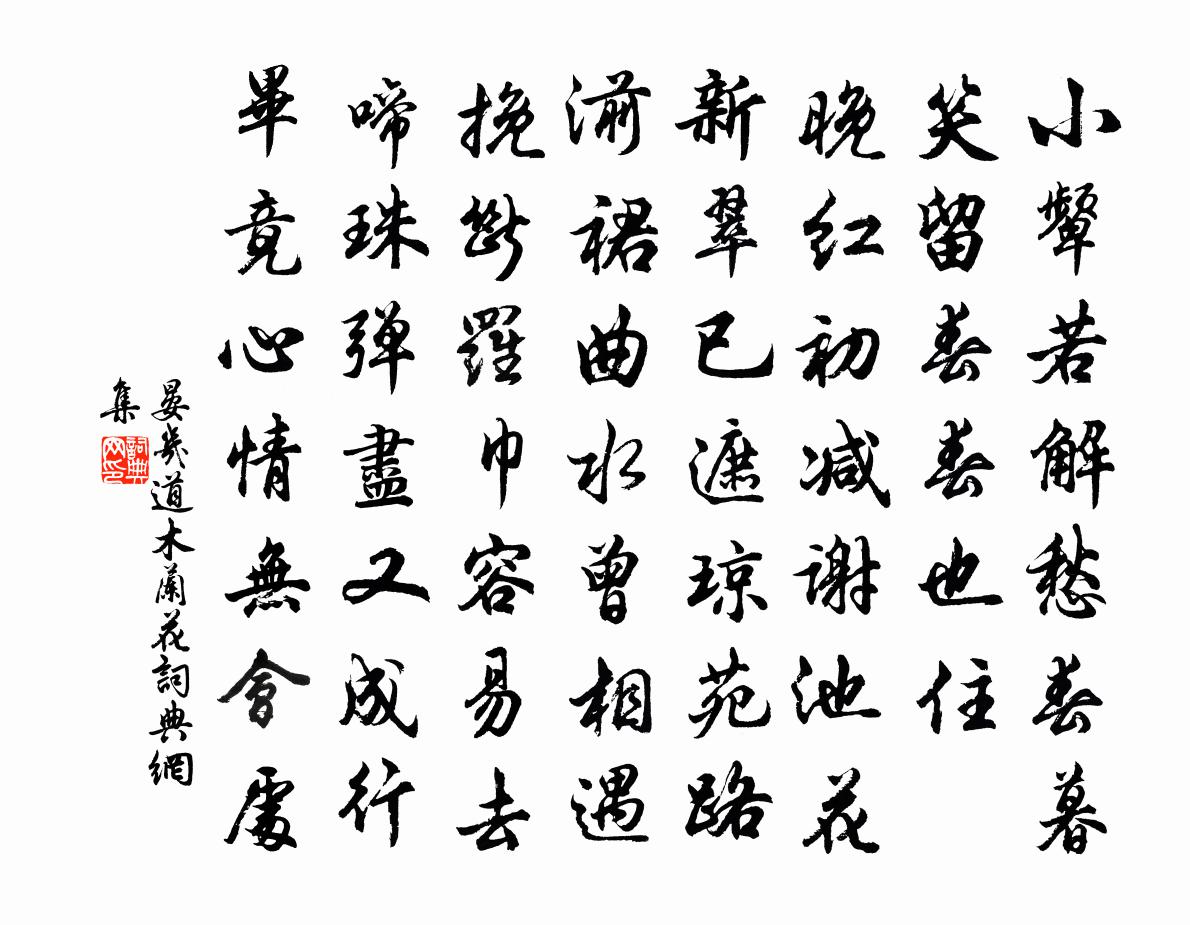 小顰若解愁春暮
笑留春春也住
晚紅初減謝池花
新翠已遮瓊苑路
湔裙曲水曾相遇
挽斷羅巾容易去
啼珠彈盡又成行
畢竟心情無會處
晏幾道木蘭花詞典網
集
詞典
网印